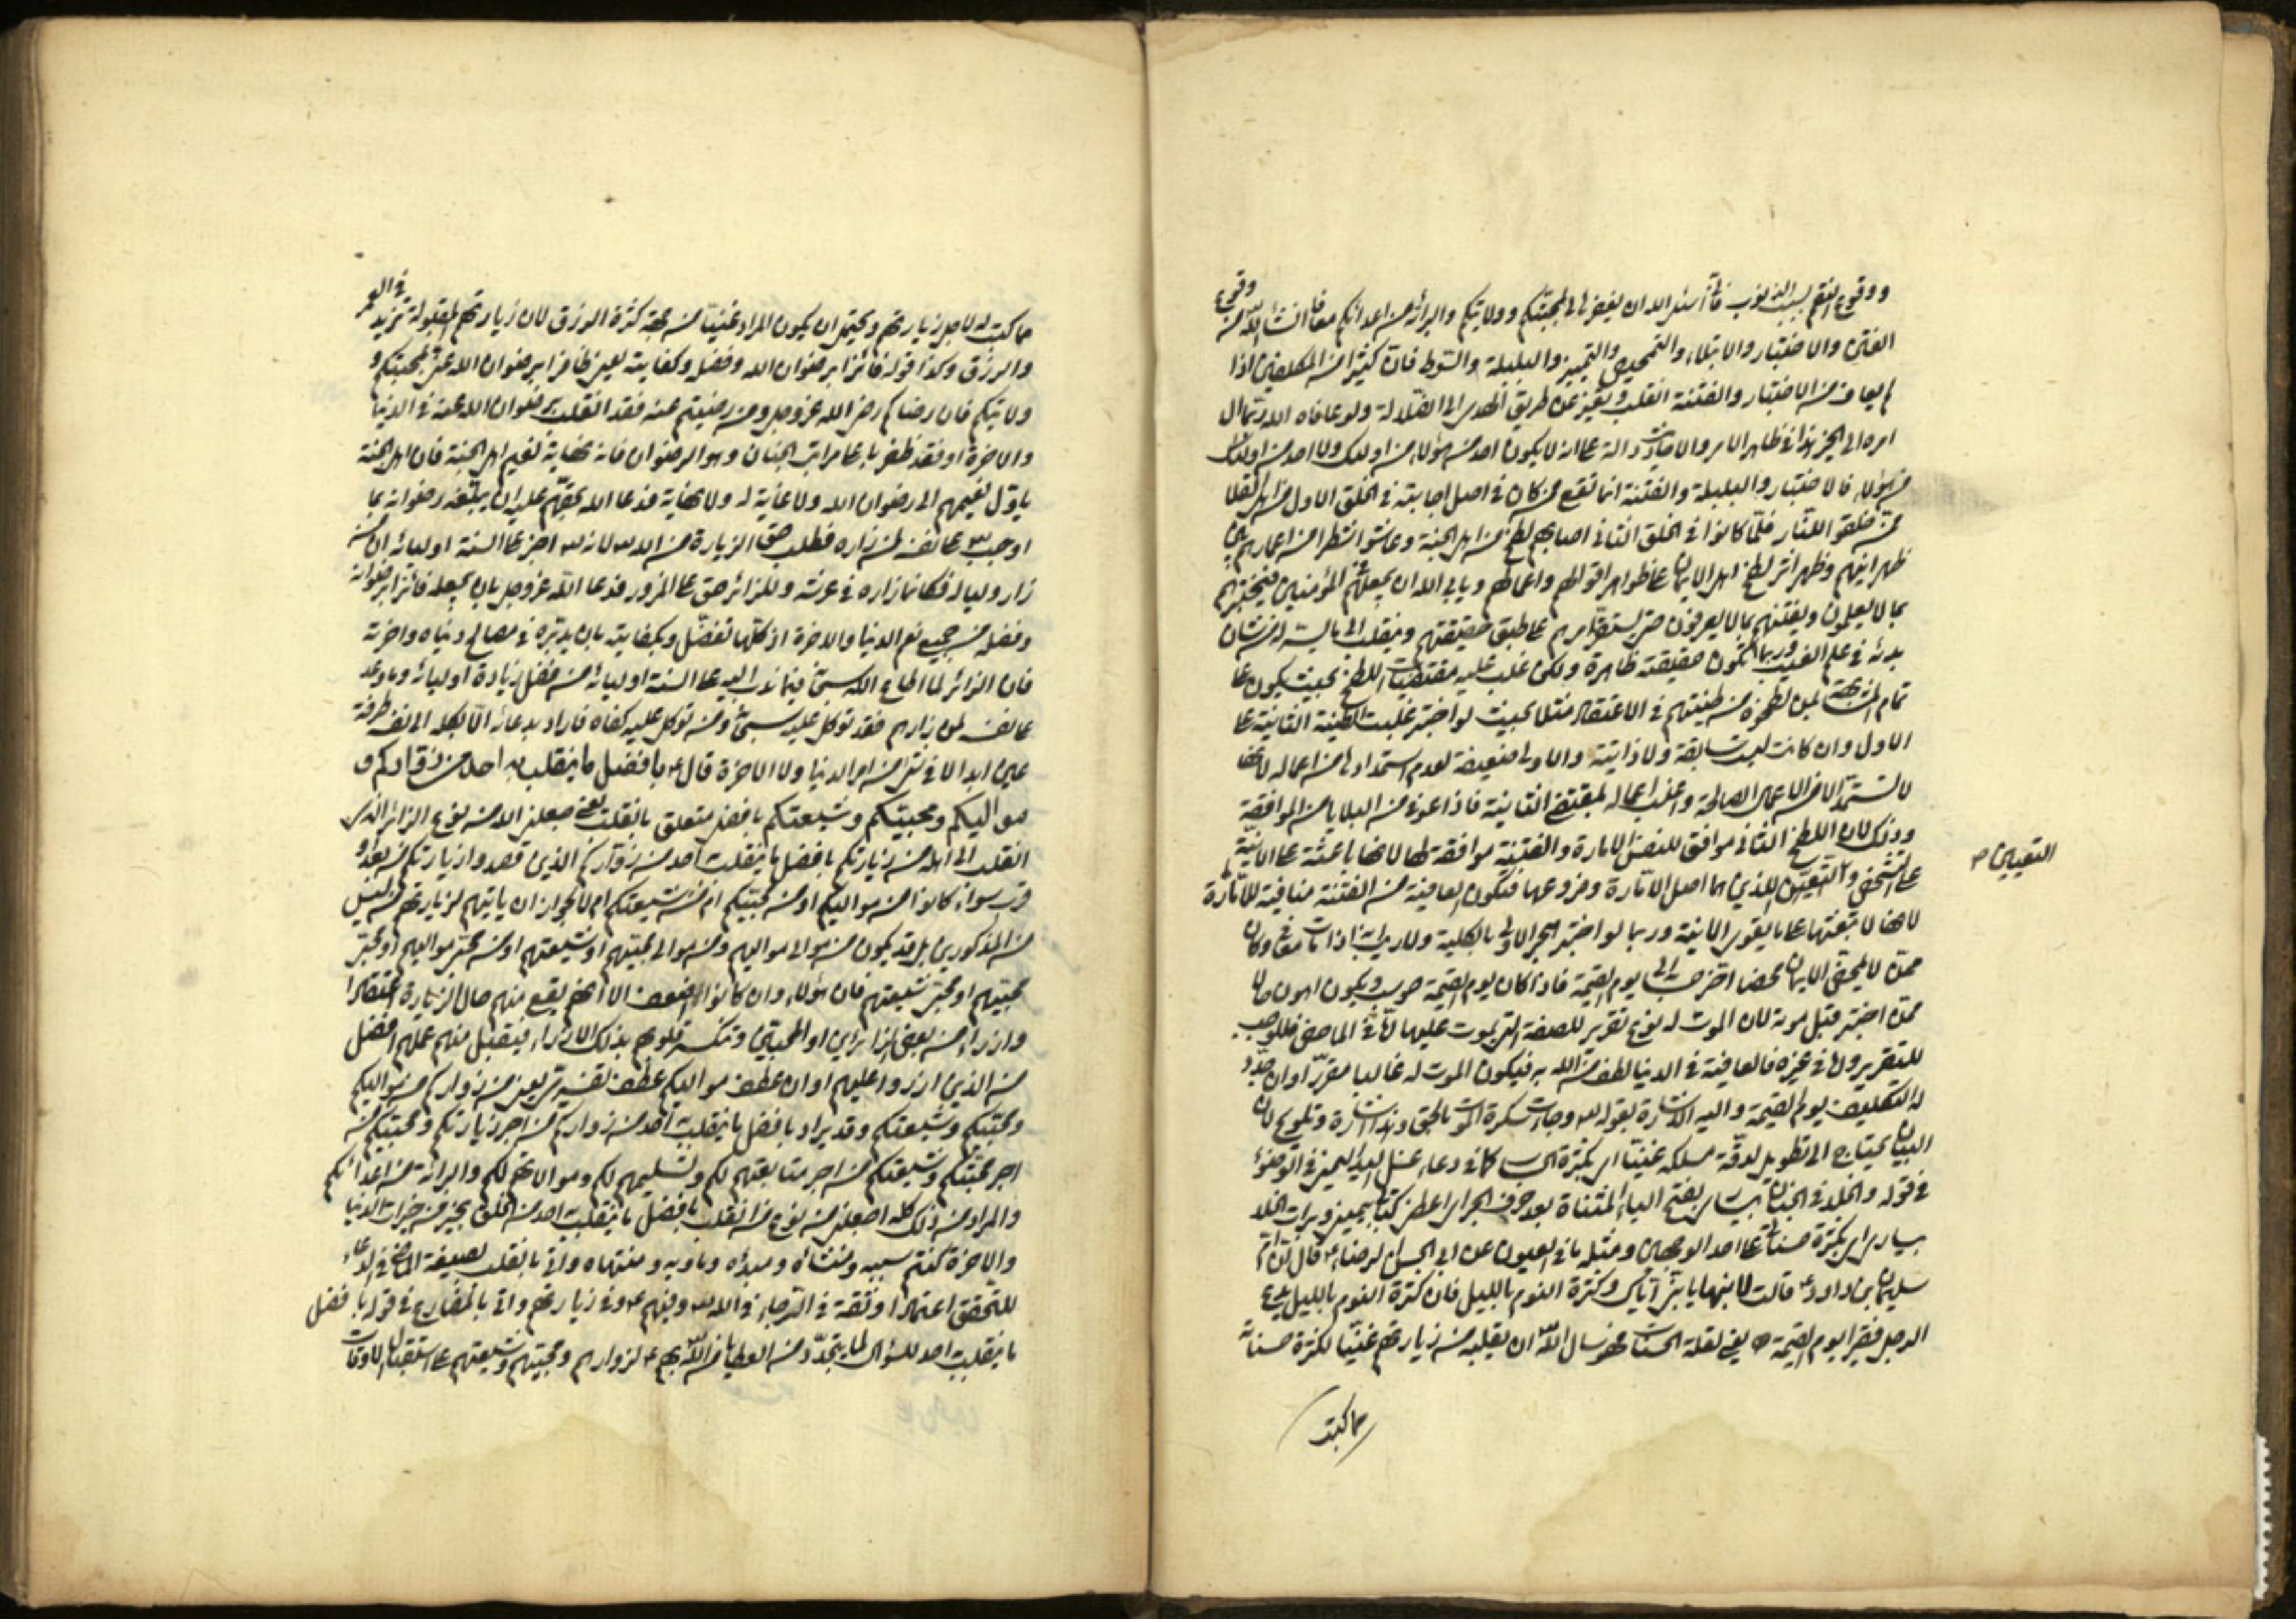 ووقوع النقم بسبب الذنوب فأنا أسئل الله ان يغفر لى لمحبتكم وولايتكم والبرائة من اعدائكم معافا انشاء الله من وقوع
الفتن والاختبار والابتلاء والتمحيص والتمييز والبلبلة والسوط فان كثيرا من المكلفين اذا
لم يعاف من الاختبار والفتنة انقلب وتغير عن طريق الهدى الى الضلالة ولو عافاه الله تعالى
امره الى الخير هذا فى ظاهر الامر والاحاديث دالة على انه لا يكون احد من هؤلاء من اولئك ولا احد من اولئك
من هؤلاء فالاختبار والبلبلة والفتنة انما تقع ممن كان فى اصل اجابته فى الخلق الاول
ممن خلقوا للنار فلما كانوا فى الخلق الثانى اصابهم لطخ من اهل الجنة وعاشوا شطرا من اعمارهم
ظهر اثر لطخ اهل الايمان على ظواهر اقوالهم واعمالهم ويابى الله ان يجعلهم فى المؤمنين فيختبرهم
بما لا يعلمون ويفتنهم بما لا يعرفون حتى يستقر امرهم على طبق حقيقتهم وينقلب الى
بدئه فى علم الغيب وربما تكون حقيقته ظاهرة ولكن غلب عليه مقتضيات اللطخ بحيث يكون على
تمام المشابهة لمن لطخوه من طينتهم فى الاعتقاد مثلا بحيث لو اختبر غلبت الطينة الثانية على
الاولى وان كانت ليست سابقة ولا ذاتية والاولى ضعيفة لعدم استمدادها من اعماله لانها
لا تستمد الا من الاعمال الصالحة واغلب اعماله بمقتضى الثانية فاذا عوفى من البلايا من الموافقة
وذلك لان اللطخ الثانى موافق للنفس الامارة والفتنة موافقة لها لانها باعثة على الانية
على التشخص والتعين اللذين هما اصل الامارة وفروعها فتكون العافية من الفتنة منافية للامارة
التعيين
لانها لا تبعثها على ما يقوى الانية وربما لو اختبر انجر الى الاولى بالكلية ولا ريب ان هذا اذا مات معافى وكان
ممن لا يمحض الايمان محضا اخر حسابه الى يوم القيمة فاذا كان يوم القيمة حوسب ويكون اهون حالا
ممن اختبر قبل موته لان الموت له نوع تقرير للصفة التى يموت عليها
للتقرير ولها فى غيره فالعافية فى الدنيا لطف من الله به فيكون الموت له غالبا مقررا وان جدد
له التكليف يوم القيمة واليه الاشارة بقوله تعالى وجاءت سكرة الموت بالحق وهذه اشارة وتلويح لان
البيان يحتاج الى تطويل لدقة مسلكه غنيا اى بكثرة الحسنات كما فى دعاء غسل اليد اليمين فى الوضوء
فى قوله والخلد فى الجنان بيسارى بفتح الياء المثناة بعد حرف الجر اى اعطنى كتابى بيمينى وبراءة الخلد
بيسارى اى بكثرة حسناتى على احد الوجهين ومثله ما فى العيون عن ابى الحسن الرضا ع قال قالت ام
سليمان بن داود ع قالت لابنها يا بنى اياك وكثرة النوم بالليل فان كثرة النوم بالليل يدع
الرجل فقيرا يوم القيمة يعنى لقلة الحسنات فهو سال الله ان يقلبه من زيارتهم غنيا لكثرة حسناته
مما كتبت
مما كتبت له لاجل زيارتهم ويحتمل ان يكون المراد غنيا من جهة كثرة الرزق لان زيارتهم المقبولة تزيد فى العمر
والرزق وكذا قوله فائزا برضوان الله وفضله وكفايته يعنى ظافرا برضوان الله عنى لمحبتكم و
ولايتكم فان رضاكم رضى الله عز وجل ومن رضيتم عنه فقد انقلب برضوان الله عنه فى الدنيا
والاخرة او فقد ظفر باعلى مراتب الجنان وهو الرضوان فانه نهاية نعيم اهل الجنة فان اهل الجنة
يأول نعيمهم الى رضوان الله ولا غاية له ولا نهاية فدعا الله بحقهم عليه ان يبلغه رضوانه بما
اوجب على نفسه لمن زاره فطلب حق الزيارة من الله لانه اخبر على السنة اوليائه ان من
زار وليا له فكانما زاره فى عرشه وللزائر حق على المزور فدعا الله عز وجل بان يجعله فائزا برضوانه
وفضله من جميع نعم الدنيا والاخرة اذ كلها تفضل وبكفايته بان يدبره فى مصالح دنياه واخرته
فان الزائر لما اطاع الله سبحانه فيما ندب اليه على السنة اوليائه من فضل زيارة اوليائه وما وعد
على نفسه لمن زارهم فقد توكل عليه سبحانه ومن توكل عليه كفاه فاراد بدعائه الا يكله الى نفسه طرفة
عين ابدا لا فى شئ من امر الدنيا ولا الاخرة قال ع بافضل ما ينقلب به احد من زواركم و
مواليكم ومحبيكم وشيعتكم بافضل متعلق بانقلب يعنى جعلنى الله من نوع الزائر الذى
انقلب الى اهله من زيارتكم بافضل ما ينقلب احد من زواركم الذين قصدوا زيارتكم من بعد و
قرب سواء كانوا من مواليكم او من محبيكم ام من شيعتكم ام لا لجواز ان ياتيهم لزيارتهم من ليس
من المذكورين بل قد يكون من موالى مواليهم ومن موالى محبيهم او شيعتهم او من محبى مواليهم او محبى
محبيهم او محبى شيعتهم فان هؤلاء وان كانوا اضعف الا انهم يقع منهم حال الزيارة احتقارا
وازراء من بعض الزائرين او المحبين وتنكسر قلوبهم بذلك الازراء فيتقبل منهم عملهم افضل
من الذين ازروا عليهم او ان عطف مواليكم عطف تفسير يعنى من زواركم من مواليكم
ومحبيكم وشيعتكم وقد يراد بافضل ما ينقلب احد من زواركم من اجر زيارتكم ومحبيكم من
اجر محبتكم وشيعتكم من اجر متابعتهم لكم وتسليمهم لكم وموالاتهم لكم والبرائة من اعدائكم
والمراد من ذلك كله اجعلنى من نوع من انقلب بافضل ما ينقلب احد من الخلق بخير من خيرات الدنيا
والاخرة كنتم سببه ومنشأه ومبدأه وماويه ومنتهاه واتى بانقلب بصيغة الماضى فى الدعاء
للتحقق اعتمادا وثقة فى الرجاء فى الله تعالى وفيهم ع وفى زيارتهم واتى بالمضارع فى قوله بافضل
ما ينقلب احد للسؤال لما يتجدد من العطايا من الله بهم ع لزوارهم ومحبيهم وشيعتهم على استقبال الاوقات